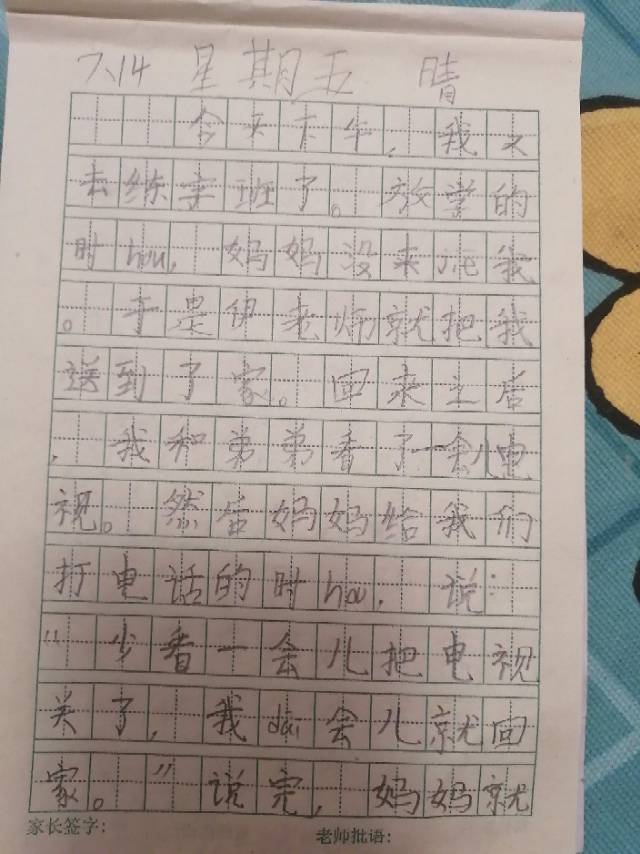 7.14 星期五 晴
今天下午,我又
去练字班了。放学的
时hou,妈妈没来jie我
。于是伊老师就把我
送到了家。回来之后
,我和弟弟看了一会儿电
视。然后妈妈给我们
打电话的时hou,说:
“少看一会儿把电视
关了,我dāi会儿就回
家。”说完,妈妈就
家长签字: 老师批语: